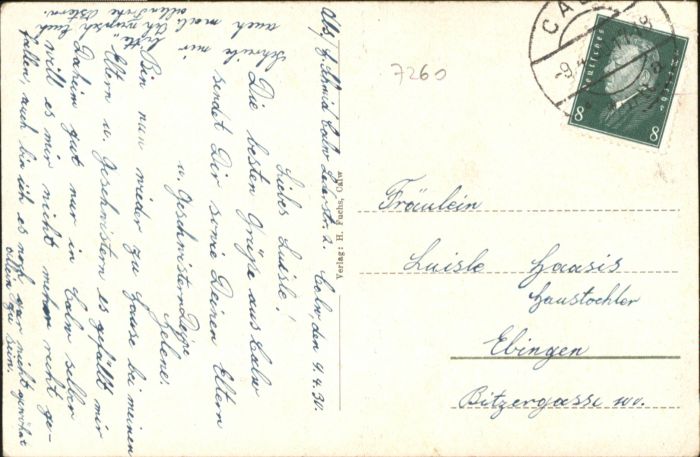 CALW
Deutsches Reich
8 8
7260
Abs. H. Schmid Calw Lederstr. 2. Calw, den 9.4.30.
Liebes Luisle!
Die besten Grüße aus Calw
sendet Dir sowie Deinen Eltern
u. Geschwistern Deine
Helene.
Bin nun wieder zu Hause bei meinen
Eltern u. Geschwistern es gefällt mir
Dahim gut nur in Calw selber
will es mir nicht mehr recht ge-
fallen auch bin ich es noch gar nicht gewöhnt
allein zu sein.
Bitte schreibe mir
auch mal. Ich wünsch Euch
allen frohe Ostern.
Verlag: H. Fuchs, Calw
Fräulein
Luisle Haasis
Haustochter
Ebingen
Bitzergasse